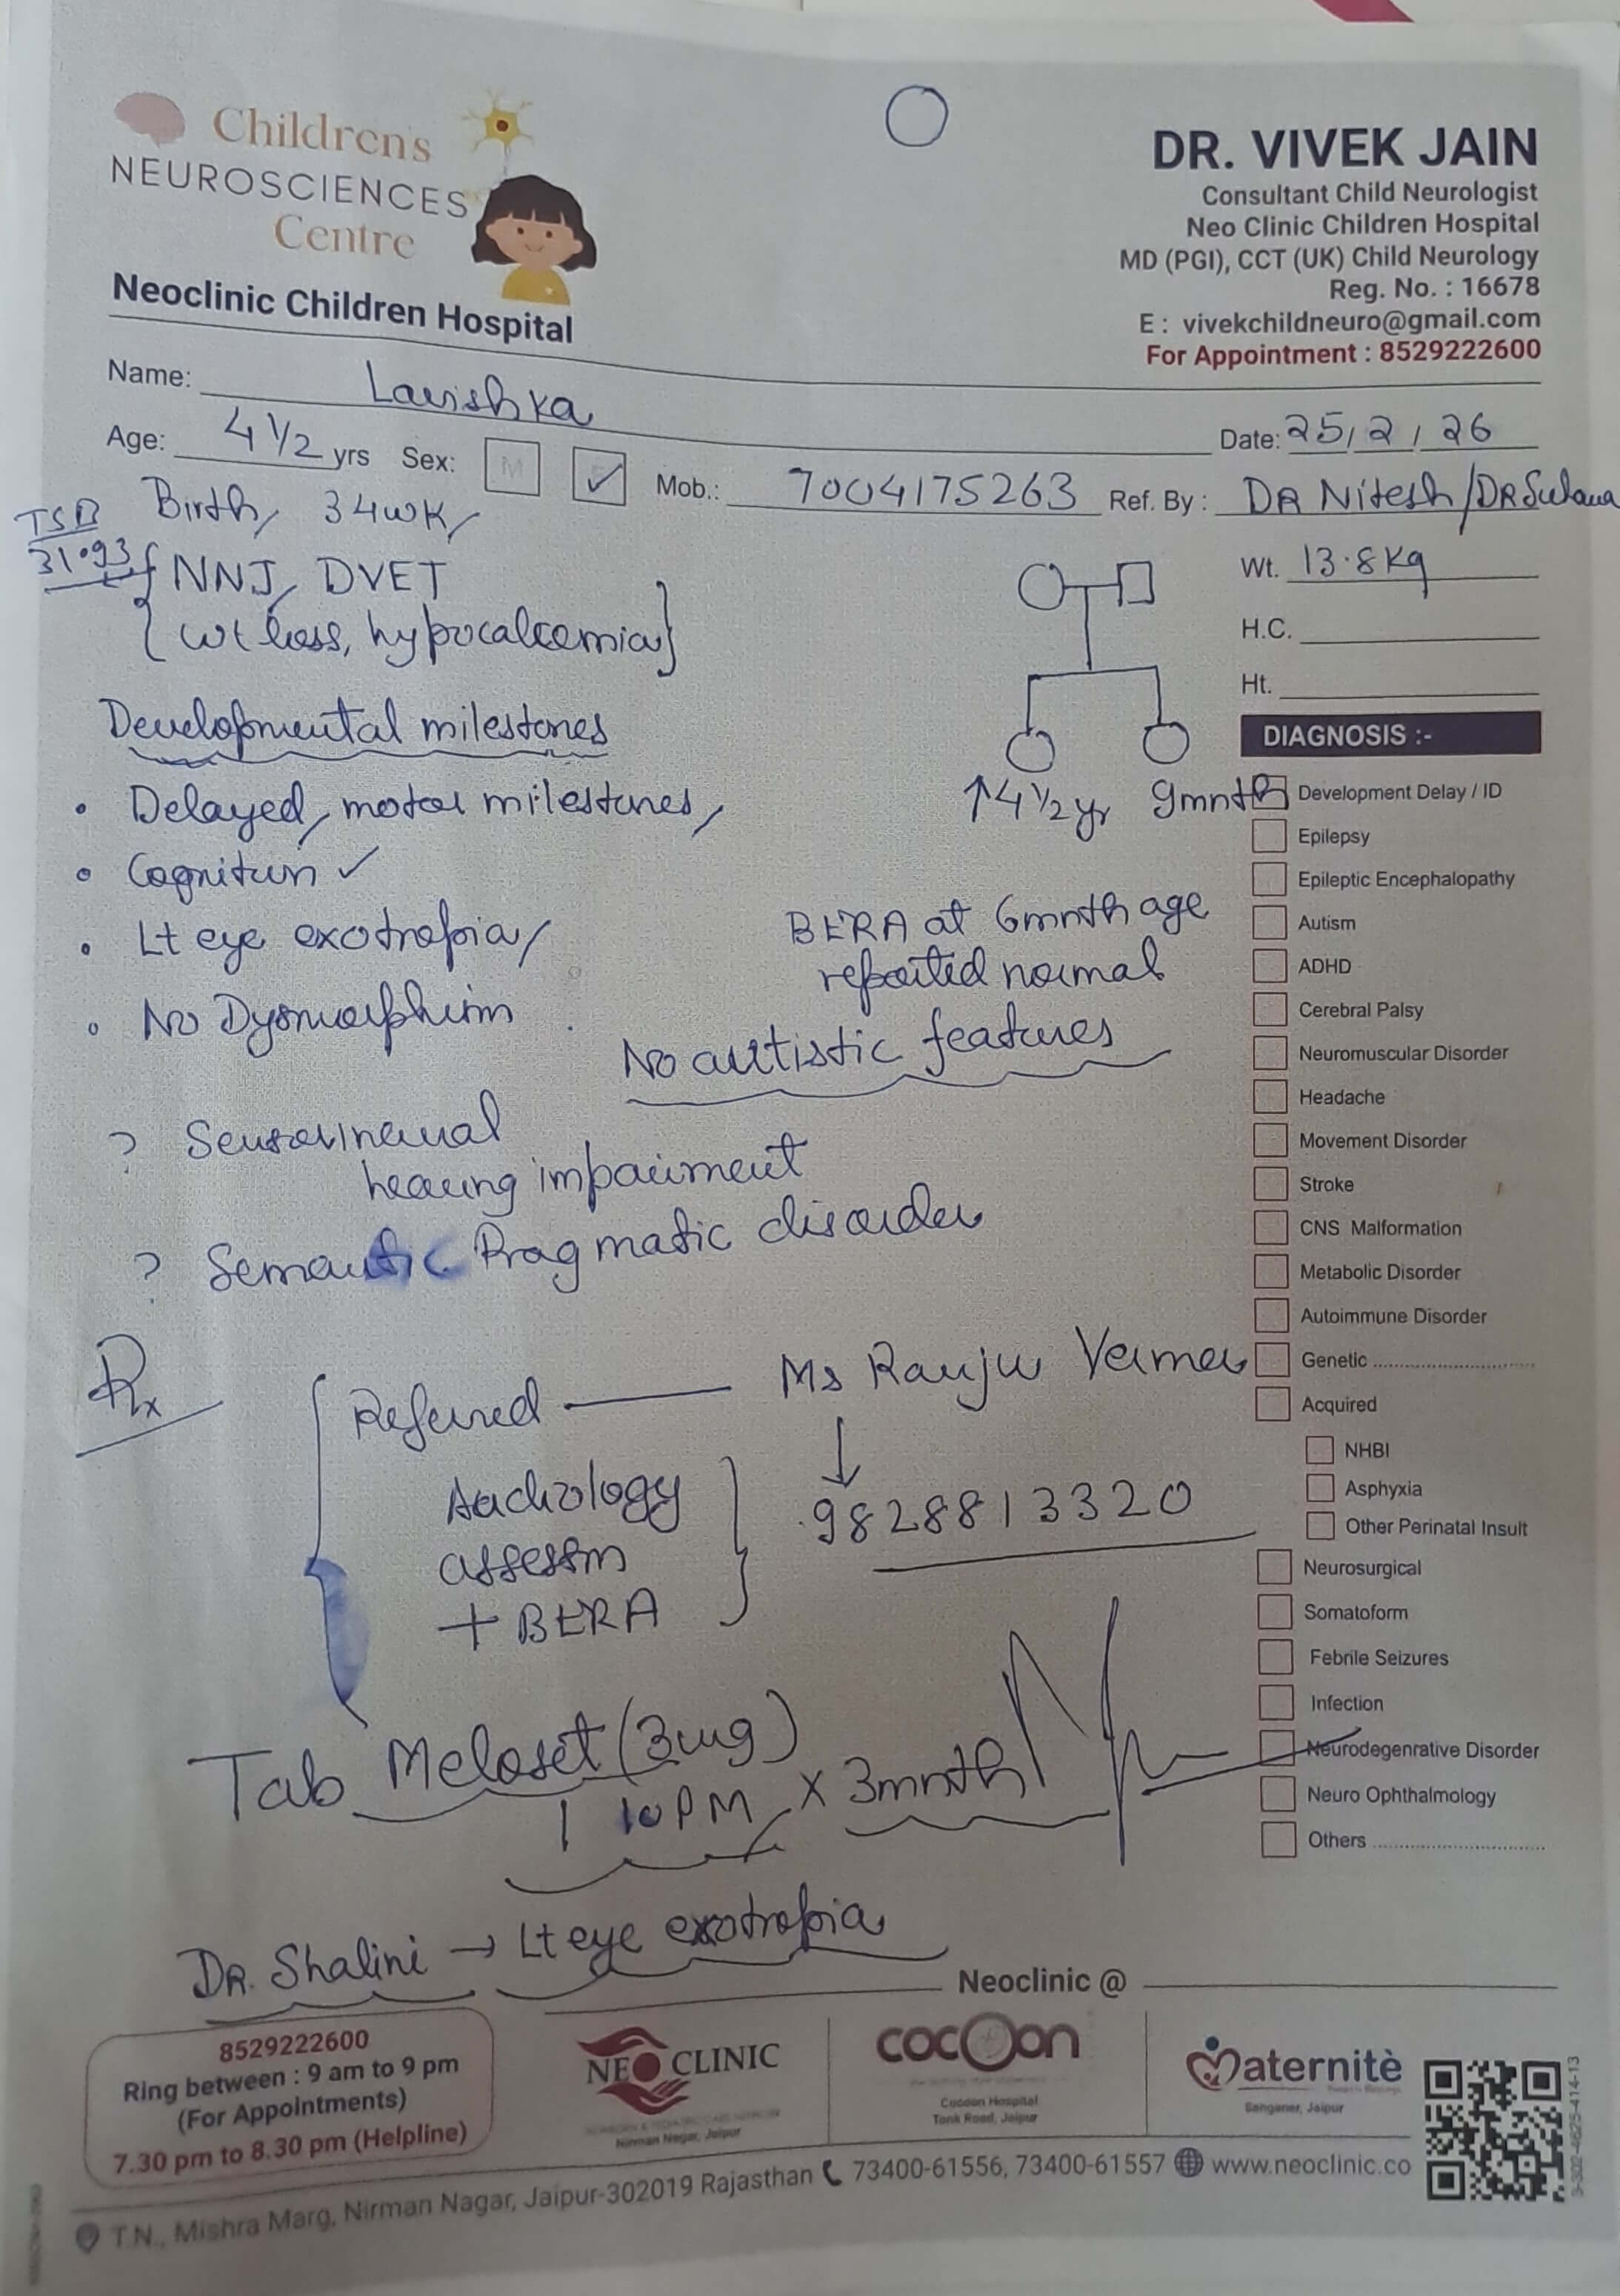 Childrens
NEUROSCIENCES
Centre
Neoclinic Children Hospital
DR. VIVEK JAIN
Consultant Child Neurologist
Neo Clinic Children Hospital
MD (PGI), CCT (UK) Child Neurology
Reg. No. : 16678
E : vivekchildneuro@gmail.com
For Appointment : 8529222600
Name: Lavishka
Date: 25/2/26
Age: 4 1/2 yrs Sex: M ✓ Mob.: 7004175263 Ref. By : DR Nitesh/DR
TSB
31.93
Birth, 34wk,
NNJ, DVET
{ wt loss, hypocalcemia }
Wt. 13.8kg
H.C.
Ht.
↑4 1/2 yr 9mnth
Developmental milestones
• Delayed, motor milestones,
• Cognition ✓
• Lt eye exotropia,
• No Dysmorphism
BERA at 6mnth age
reported normal
No autistic features
? Sensorineural
hearing impairment
? Semantic Pragmatic disorder
Rx
Referred — Ms Ranju Verma
↓
Audiology
assessm
+ BERA
9828813320
Tab Meloset (3mg)
1 10PM x 3mnth
DR. Shalini → Lt eye exotropia
DIAGNOSIS :-
Development Delay / ID
Epilepsy
Epileptic Encephalopathy
Autism
ADHD
Cerebral Palsy
Neuromuscular Disorder
Headache
Movement Disorder
Stroke
CNS Malformation
Metabolic Disorder
Autoimmune Disorder
Genetic ..............................
Acquired
NHBI
Asphyxia
Other Perinatal Insult
Neurosurgical
Somatoform
Febrile Seizures
Infection
Neurodegenrative Disorder
Neuro Ophthalmology
Others ..............................
Neoclinic @
8529222600
Ring between : 9 am to 9 pm
(For Appointments)
7.30 pm to 8.30 pm (Helpline)
NEO CLINIC
Nirman Nagar, Jaipur
cocoon
Cocoon Hospital
Tonk Road, Jaipur
Maternitè
Sanganer, Jaipur
3-302-4625-414-13
T.N., Mishra Marg, Nirman Nagar, Jaipur-302019 Rajasthan 73400-61556, 73400-61557 www.neoclinic.co